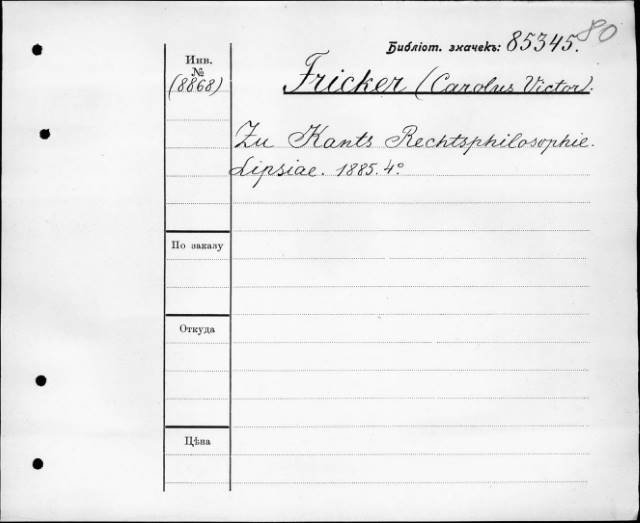 80
Библіот. значекъ: 85345.
Инв.
№
(8868)
Fricker (Carolus Victor).
Zu Kants Rechtsphilosophie.
Lipsiae. 1885. 4°
По заказу
Откуда
Цѣна